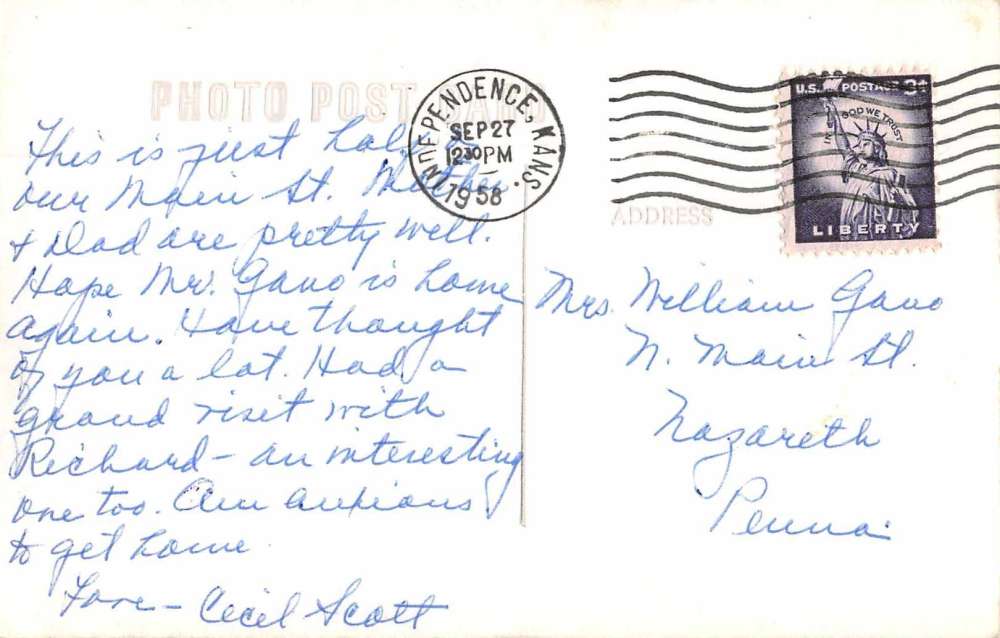 PHOTO POST CARD
INDEPENDENCE, KANS.
SEP 27
12 30 PM
1958
U.S. POSTAGE 3¢
IN GOD WE TRUST
LIBERTY
ADDRESS
This is just half
our Main St. Mother
& Dad are pretty well.
Hope Mr. Gano is home
again. Have thought
of you a lot. Had a
grand visit with
Richard - an interesting
one too. Am anxious
to get home.
Love - Cecil Scott
Mrs. William Gano
N. Main St.
Nazareth
Penna.